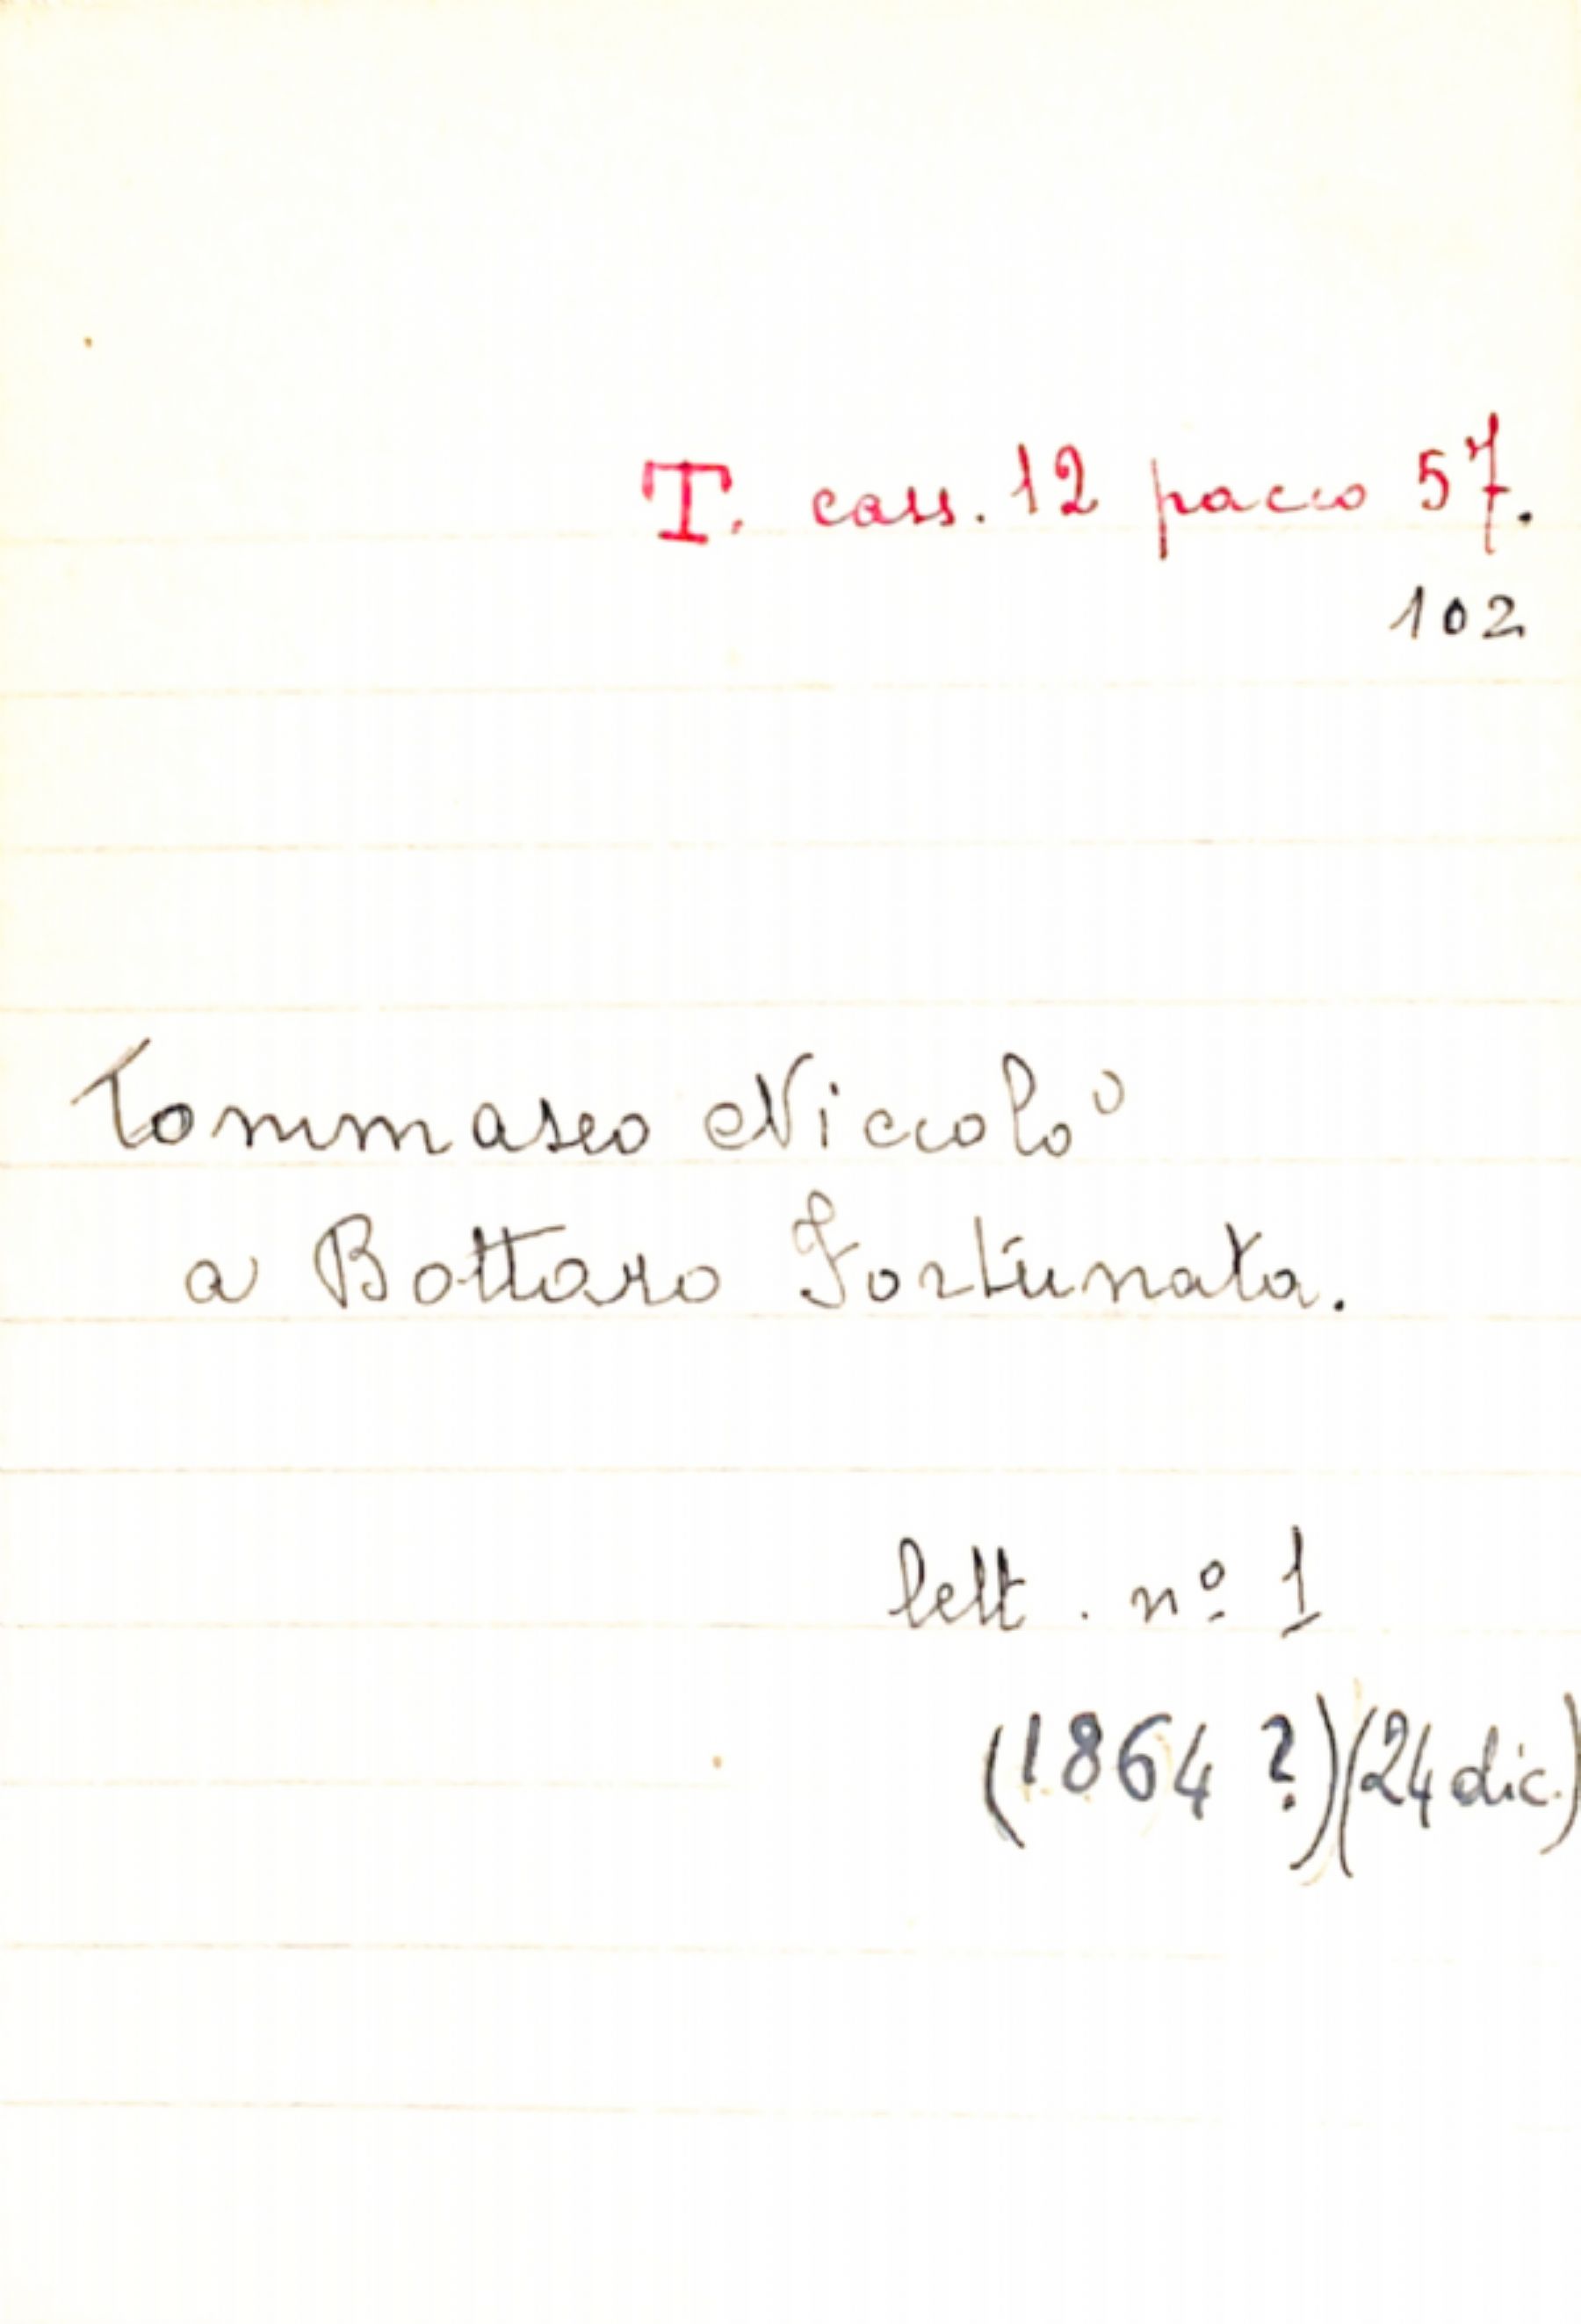 T. cass. 12 pacco 57.
102
Tommaseo Niccolò
a Bottaro Fortunata.
lett. nº 1
(1864 ?) (24 dic.)